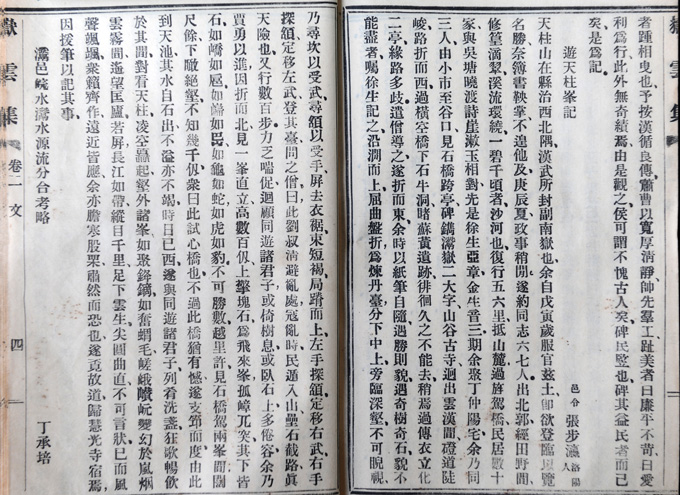 嶽雲集
者踵相曳也予按漢循良傳蕭曹以寬厚清靜帥先羣工趾美者曰廉平不苛曰愛
利爲行此外無奇績焉由是觀之侯可謂不愧古人矣碑民監也碑其益民者而已
矣是爲記
遊天柱峯記
邑令 張步瀛 洛陽人
天柱山在縣治西北隅漢武所封副南嶽也余自戊寅歲服官兹土卽欲登臨以覽
名勝奈簿書鞅掌不遑他及庚辰夏政事稍閒遂約同志六七人出北郭經田野間
修篁滴翠溪流環繞一碧千頃者沙河也復行五六里抵山麓過旌駕橋民居數十
家與吳塘曉渡詩崖漱玉相對先是徐生亞章金生晋三期余聚丁仲陽宅余乃同
三人由小市至谷口見石橋跨亭碑鐫灊嶽二大字山谷古寺迥出雲漢間磴道陡
峻路折而西過橫空橋下石牛洞睹蘇黃遺跡徘徊久之不能去稍焉過傳衣立化
二亭緣路多歧遣僧導之遂折而東余時以紙筆自隨遇勝則貌遇奇樹奇石貌不
能盡者囑徐生記之沿澗而上屈曲盤折爲煉丹臺分下中上旁臨深壑不可睨視
乃尋坎以受武尋額以受手屏去衣裾束短褐局蹐而上左手探額定移右武右手
探額定移左武登其臺問之僧曰此劉叔清避亂處寇亂時民遁入山壘石截路眞
天險也又行數百步力乏喘促迴顧同遊諸君子或倚樹息或臥石上多倦容余乃
賈勇以進因折而北見一峯直立高數百仭上擎塊石爲飛來峯孤嶂兀突其下皆
石如嶠如屈如龜如蛇如虎如豹不可勝數越里許見石橋駕兩峯間闊
尺餘下瞰絕壑不知幾千仭衆曰此試心橋也不過此橋猶有憾遂支筇而度由此
到天池其水自石出不溢亦不竭時日已西遂與同遊諸君子列肴洗盞狂歌暢飲
於其間對看天柱凌空矗起壑外諸峯如聚鋒鏑如奮蝟毛嵯峨巑岏變幻於嵐烟
雲霧間遙望匡廬若屏長江如帶縱目千里足下雲生尖圓曲直不可言狀已而風
聲颯颯衆籟齊作遠近皆應余亦膽寒股栗肅然而恐也遂覓故道歸慧光寺宿焉
因援筆以記其事
灊邑皖水灊水源流分合考略
丁承培
嶽雲集
卷二 文
四